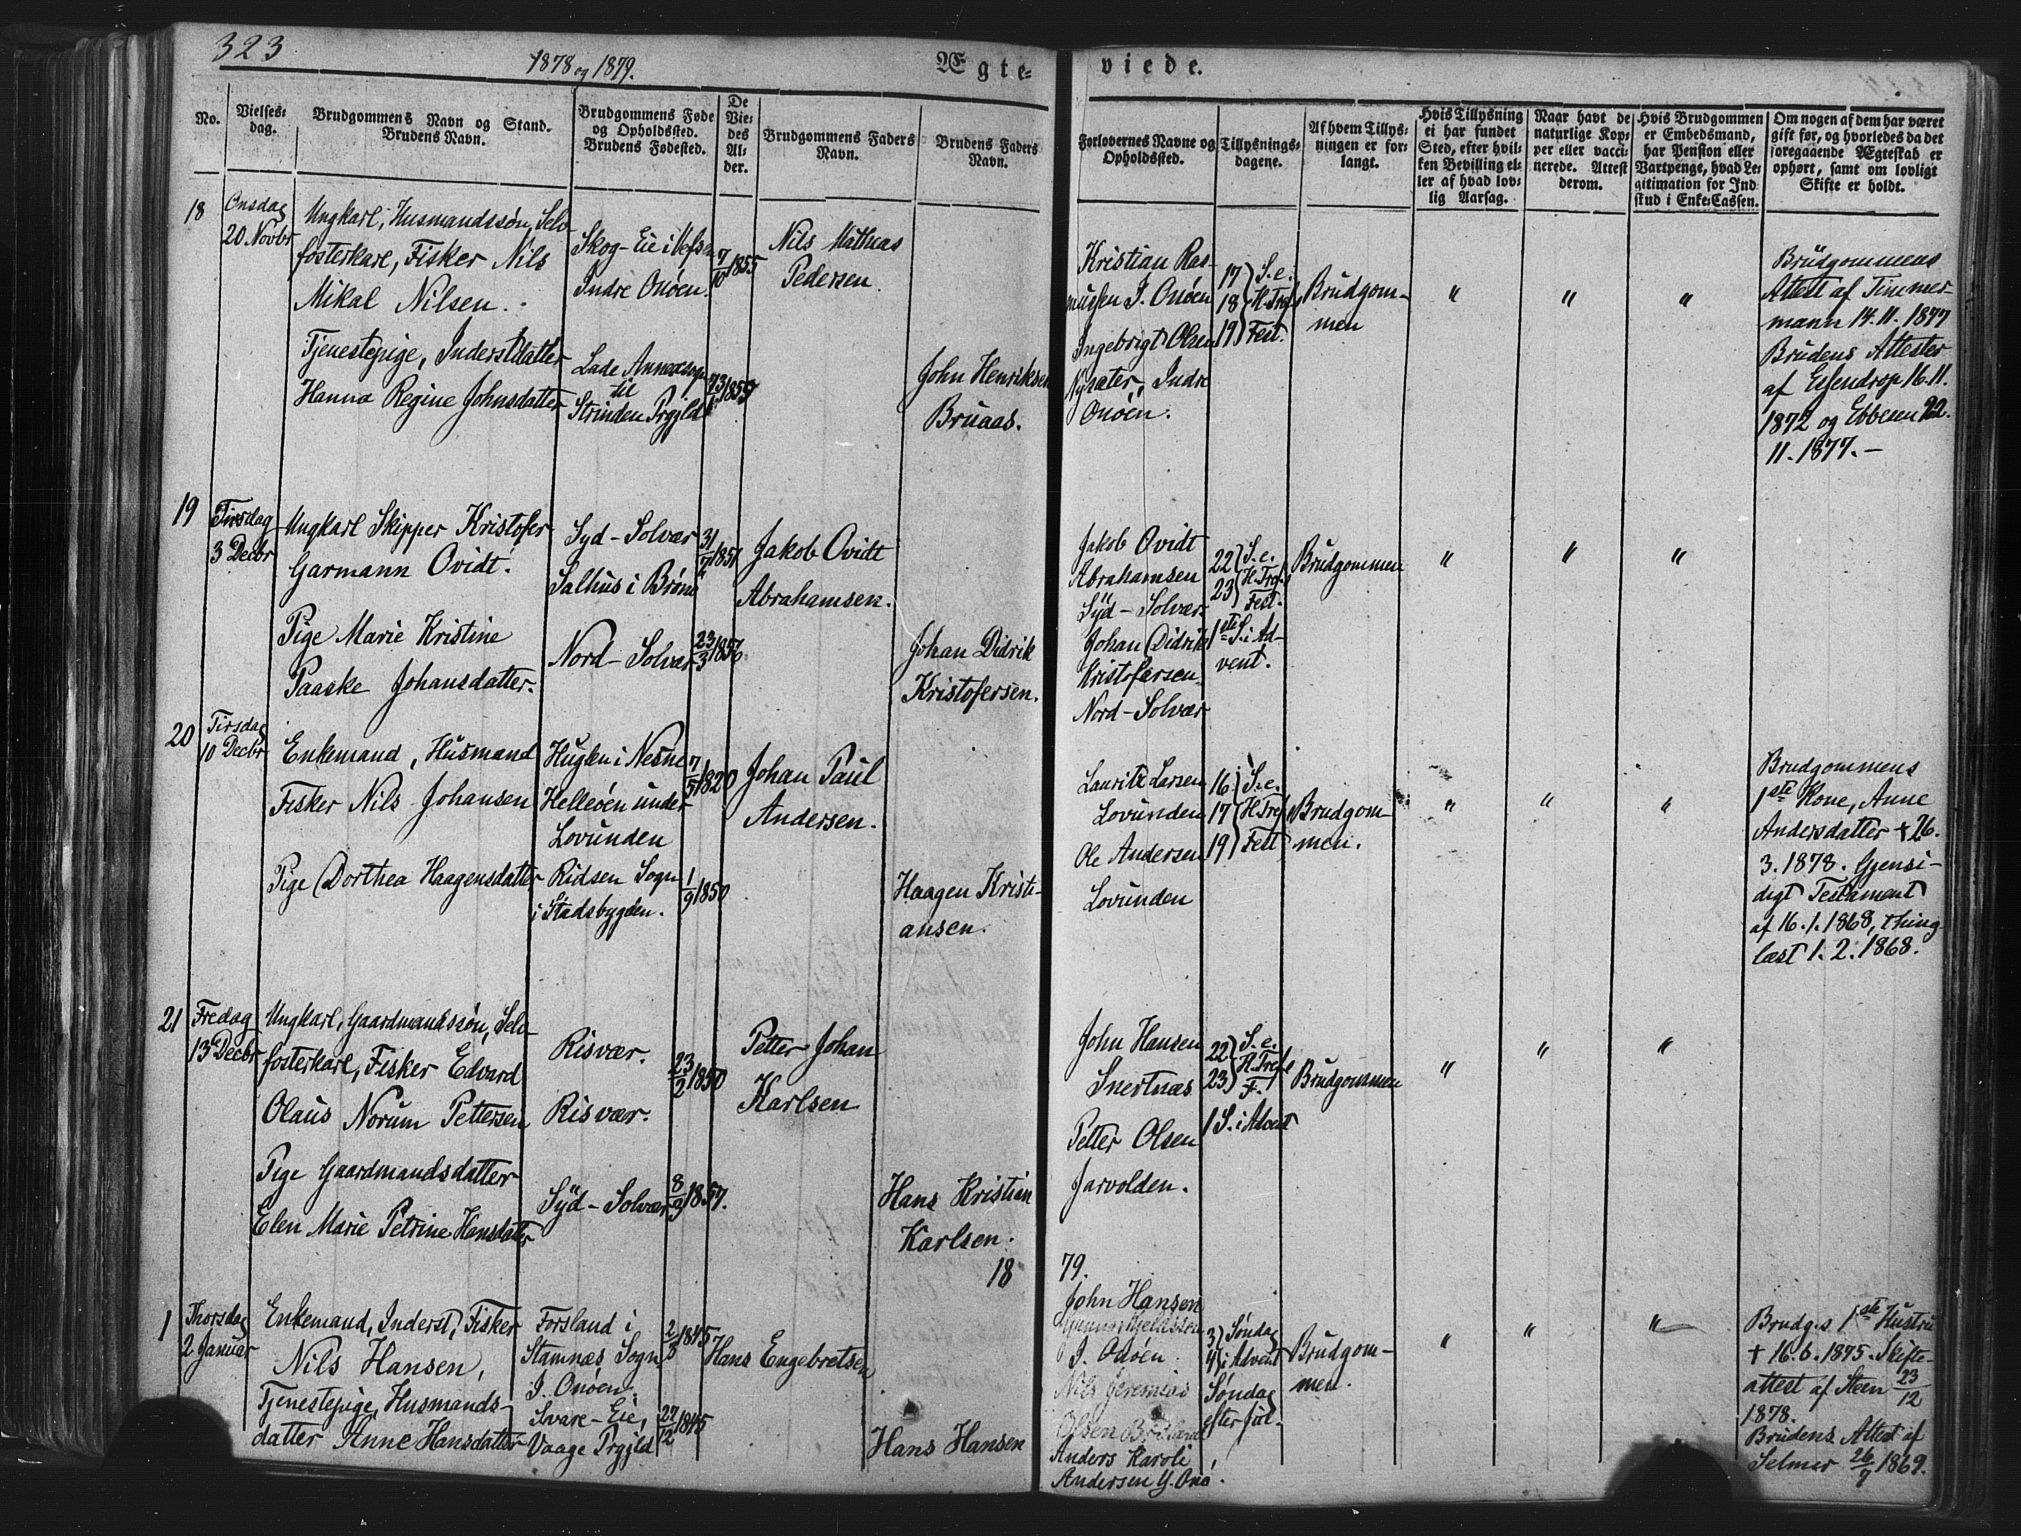 323
1878 og 1879.
Ægte-
viede.
No.
Vielses-
dag.
Brudgommens Navn og Stand.
Brudens Navn.
Brudgommens Føde
og Opholdssted.
Brudens Fødested.
De
Vie-
des
Al-
der.
Brudgommens Faders
Navn.
Brudens Faders
Navn.
Forlovernes Navne og
Opholdssted.
Tillysnings-
dagene.
Af hvem Tillys-
ningen er for-
langt.
Hvis Tillysning
ei har fundet
Sted, efter hvil-
ken Bevilling el-
ler af hvad lov-
lig Aarsag.
Naar havt de
naturlige Kop-
per eller vacci-
nerede. Attest
derom.
Hvis Brudgommen
er Embedsmand,
har Pension eller
Vartpenge, hvad Le-
gitimation for Ind-
skud i Enke-Cassen.
Om nogen af dem har været
gift før, og hvorledes da det
foregaaende Ægteskab er
ophørt, samt om lovligt
Skifte er holdt.
18
Onsdag
20 Novbr
Ungkarl, Husmandssøn, Selv-
fosterkarl, Fisker Nils
Mikal Nilsen.
Skog-Eie i Vefsn
Indre Onöen.
7/10 1855
Nils Mathias
Pedersen.
Tjenestepige, Inderstdatter
Hanna Regine Johnsdatter
Lade Annexsogn
til
Strinden Prgjld
1855
John Henriksen
Bruaas.
Kristian Ras-
mussen I. Onöen
Ingebrigt Olsen
Nysæter, Indre
Onöen.
17 S. e.
18 H. Tref.
19 Fest.
Brudgom-
men
" " "
Brudgommens
Attest af Timmer-
mann 14.11.1877
Brudens Attester
af Essendrop 16.11.
1872 og Ebbesen 22.
11.1877.-
19
Tirsdag
3 Decbr
Ungkarl Skipper Kristofer
Garmann Ovidt.
Syd-Solvær
Salhus i Brönö
31/7 1851
Jakob Ovidt
Abrahamsen.
Pige Marie Kristine
Paaske Johansdatter.
Nord-Solvær
23/3 1856
Johan Didrik
Kristofersen.
Jakob Ovidt
Abrahamsen
Syd-Solvær
Johan Didrik
Kristofersen
Nord-Solvær
22 S. e.
23 H. Tref.
Fest.
1ste S. i Ad-
vent.
Brudgommen
" " "
20
Tirsdag
10 Decbr
Enkemand, Husmand
Fisker Nils Johansen
Huglen i Nesne
Helleöen under
Lovunden
7/5 1820
Johan Paul
Andersen.
Pige Dorthea Haagensdatter
Ridsen Sogn
i Stadsbygden.
1/9 1850
Haagen Kristi-
ansen.
Lauritz Larsen
Lovunden
Ole Andersen
Lovunden
16 S. e.
17 H. Tref
19 Fest
Brudgom-
men.
" " "
Brudgommens
1ste Kone, Anne
Andersdatter + 26.
3.1878. Gjensi-
digt Testament
af 16.1.1868, thing-
læst 1.2.1868.
21
Fredag
13 Decbr
Ungkarl, Gaardmandssøn, Selv-
fosterkarl, Fisker Edvard
Olaus Norum Pettersen
Risvær.
Risvær.
23/2 1850
Petter Johan
Karlsen
Pige Gaardmandsdatter
Elen Marie Petrine Hansdatter
Syd-Solvær
8/3 1857.
Hans Kristian
Karlsen.
John Hansen
Snertnæs
Petter Olsen
Jarvolden.
22 S. e.
23 H. Tref
F.
1 S. i Advent
Brudgommen
" " "
18
79.
1
Thorsdag
2 Januar
Enkemand, Inderst, Fisker
Nils Hansen,
Forsland i
Stamnæs Sogn
I. Onöen.
2/8 1845
Hans Engebretsen
Tjenestepige, Husmands-
datter Anne Hansdatter
Svare-Eie,
Vaage Prgjld
27/12 1845
Hans Hansen
John Hansen
I. Onöen.
Nils Jeremias
Olsen
Anders Karoli
Andersen Y. Onö.
3) Søndag
4) i Advent
Søndag
efter Jul.
Brudgom-
men.
" " "
Brudg.s 1ste Hustru
+ 16.6.1875. Skifte-
attest af Steen 23/12
1878.
Brudens Attest af
Selmer 26/7 1869.